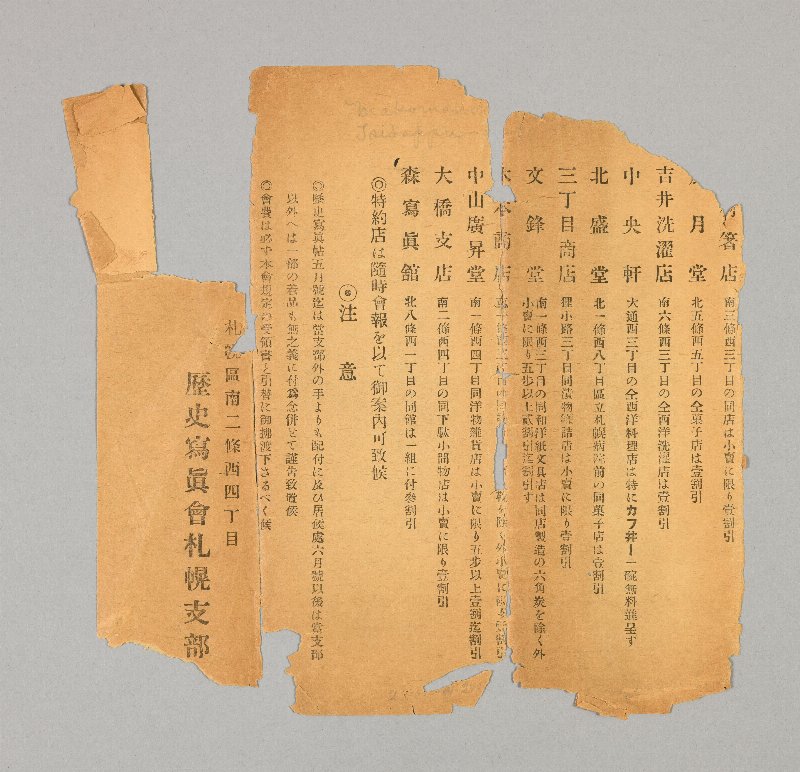 箸店 南三條西三丁目の同店は小賣に限り壹割引
月堂 北五條西五丁目の仝菓子店は壹割引
吉井洗濯店 南六條西三丁目の仝西洋洗濯店は壹割引
中央軒 大通西三丁目の仝西洋料理店は特にカフ井ー一碗無料進呈す
北盛堂 北一條西八丁目區立札幌病院前の同菓子店は壹割引
三丁目商店 狸小路三丁目同漬物罐詰店は小賣に限り壹割引
文鋒堂 南一條西三丁目の同和洋紙文具店は同店製造の六角炭を除く外
小賣に限り五歩以上貳割引迄割引す
本商店 を除く外小賣に限り壹割引
中山廣昇堂 南一條西四丁目同洋物雜貨店は小賣に限り五歩以上壹割迄割引
大橋支店 南二條西四丁目の同下駄小間物店は小賣に限り壹割引
森寫眞舘 北八條西一丁目の同舘は一組に付參割引
◎特約店は隨時會報を以て御案内可致候
◉注意
◎歷史寫眞帖五月號迄は當支部外の手よりも配付に及び居候處六月號以後は當支部
以外へは一部の巻品も無之義に付爲念併せて謹告致置候
◎會費は必ず本會規定の受領書と引替に御拂渡下さるべく候
札幌區南二條西四丁目
歷史寫眞會札幌支部